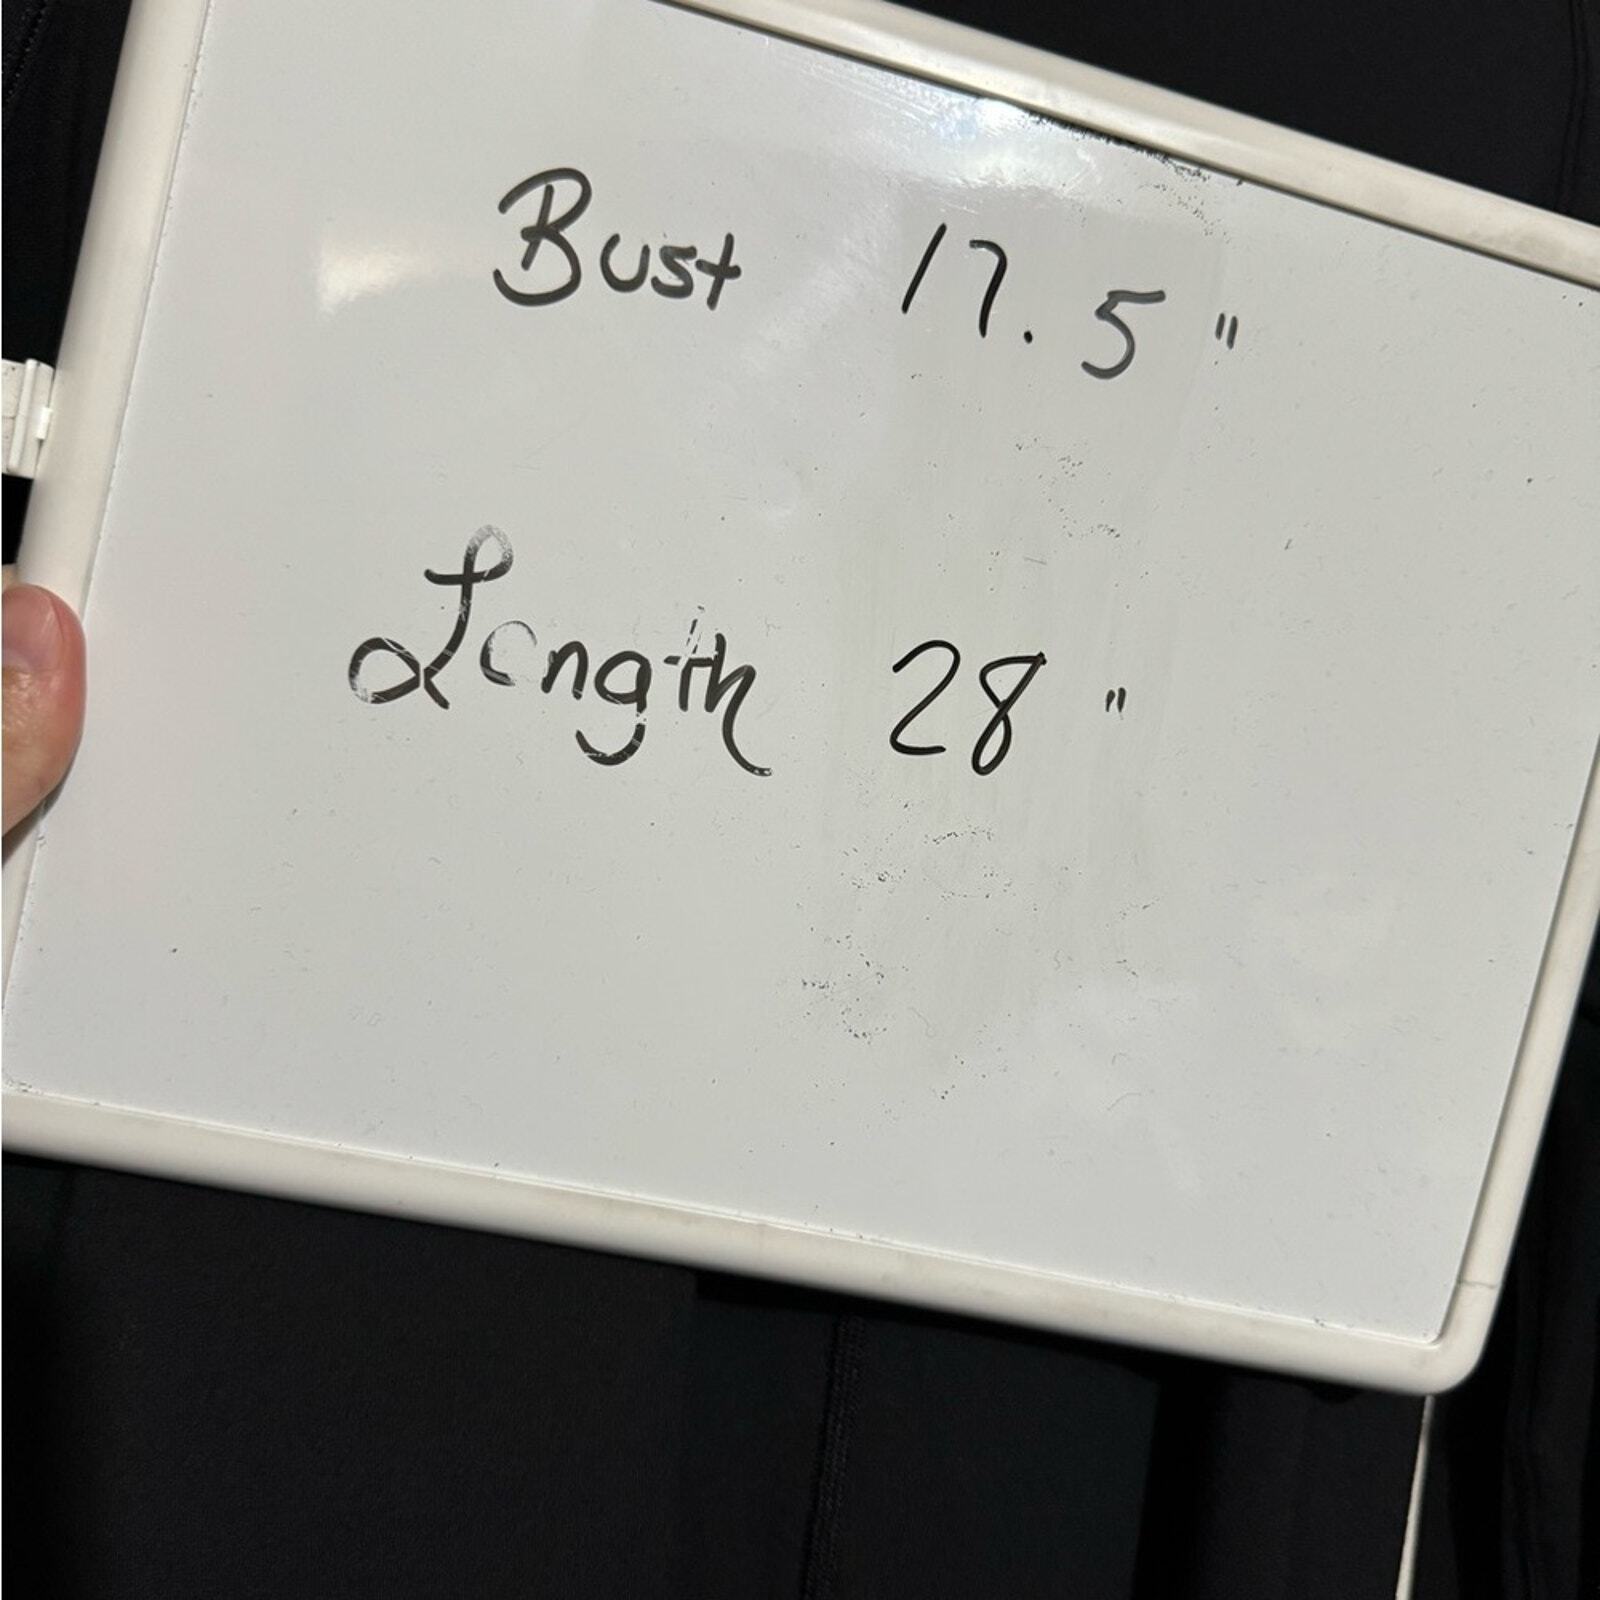 Bust 17.5"
Length 28"